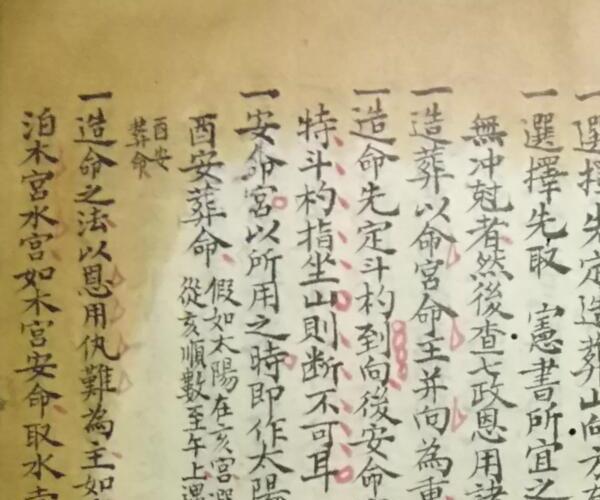 一選擇先定造葬山向方
一選擇先取 憲書所宜之
無冲尅者然後查七政恩用諸
一造葬以命宮命主并向為重
一造命先定斗杓到向後安命
特斗杓指坐山則断不可耳
一安命宮以所用之時即作太陽
酉安葬命 假如太陽在亥宮
從亥順數至午上遇
酉安
葬命
一造命之法以恩用仇難為主如
泊木宮水宮如木宮安命取水